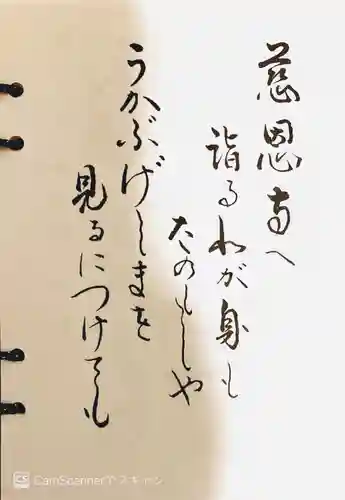 慈恩寺へ
詣るわが身も
たのもしや
うかぶげしまを
見るにつけても
CS CamScannerでスキャン